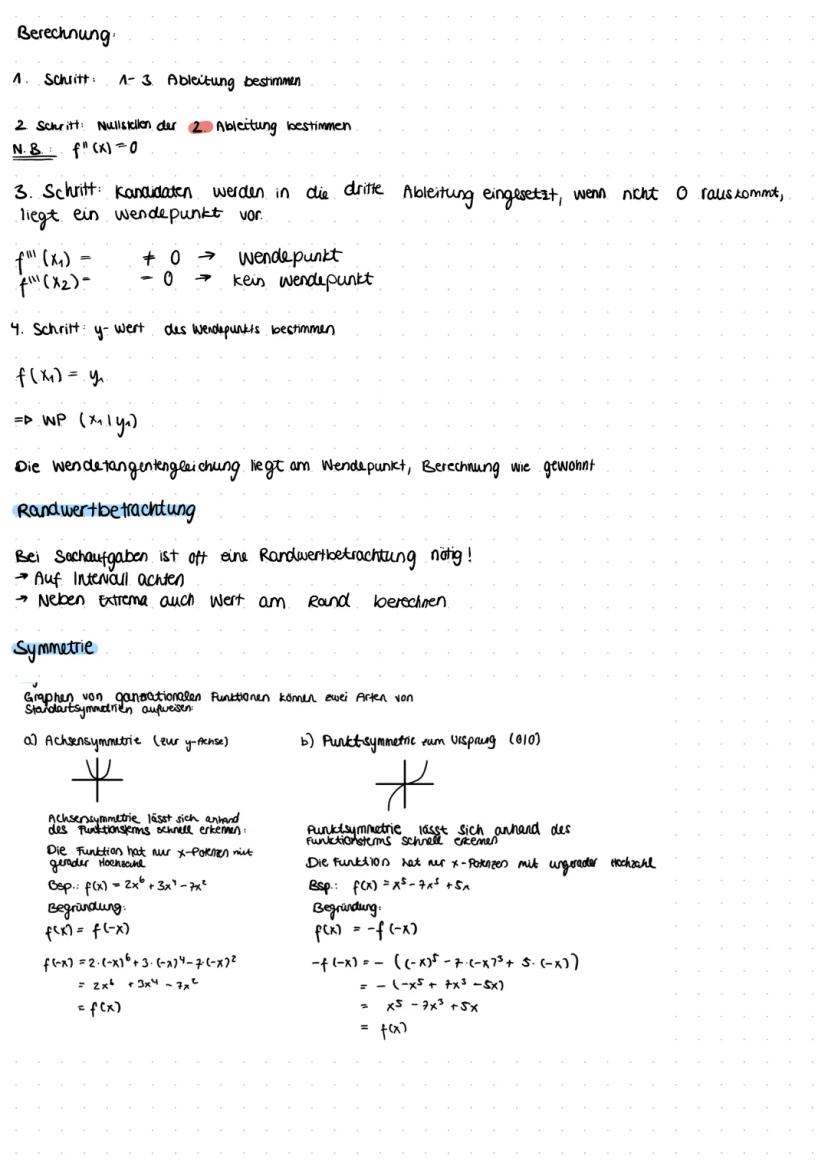 Berechnung:
1. Schritt: 1-3. Ableitung bestimmen
2 Schritt: Nullstellen der 2. Ableitung bestimmen
N.B.: f''(x)=0
3. Schritt: Kandidaten werden in die dritte Ableitung eingesetzt, wenn nicht 0 rauskommt,
liegt ein Wendepunkt vor.
f'''(x₁) = ≠ 0 → Wendepunkt
f'''(x₂) = = 0 → kein Wendepunkt
4. Schritt: y-Wert des Wendepunkts bestimmen
f(x₁) = y₁
=> WP (x₁|y₁)
Die Wendetangentengleichung liegt am Wendepunkt, Berechnung wie gewohnt
Randwertbetrachtung
Bei Sachaufgaben ist oft eine Randwertbetrachtung nötig!
→ Auf Intervall achten
→ Neben Extrema auch Wert am Rand berechnen
Symmetrie
Graphen von ganzrationalen Funktionen können zwei Arten von
Standartsymmetrien aufweisen:
a) Achsensymmetrie (zur y-Achse)
Achsensymmetrie lässt sich anhand
des Funktionsterms schnell erkennen:
Die Funktion hat nur x-Potenzen mit
gerader Hochzahl
Bsp.: f(x) = 2x⁶ + 3x⁴ - 7x²
Begründung:
f(x) = f(-x)
f(-x) = 2·(-x)⁶ + 3·(-x)⁴ - 7·(-x)²
= 2x⁶ + 3x⁴ - 7x²
= f(x)
b) Punktsymmetrie zum Ursprung (0|0)
Punktsymmetrie lässt sich anhand des
Funktionsterms schnell erkennen
Die Funktion hat nur x-Potenzen mit ungerader Hochzahl
Bsp.: f(x) = x⁵ - 7x³ + 5x
Begründung:
f(x) = -f(-x)
-f(-x) = - ((-x)⁵ - 7·(-x)³ + 5·(-x))
= - (-x⁵ + 7x³ - 5x)
= x⁵ - 7x³ + 5x
= f(x)